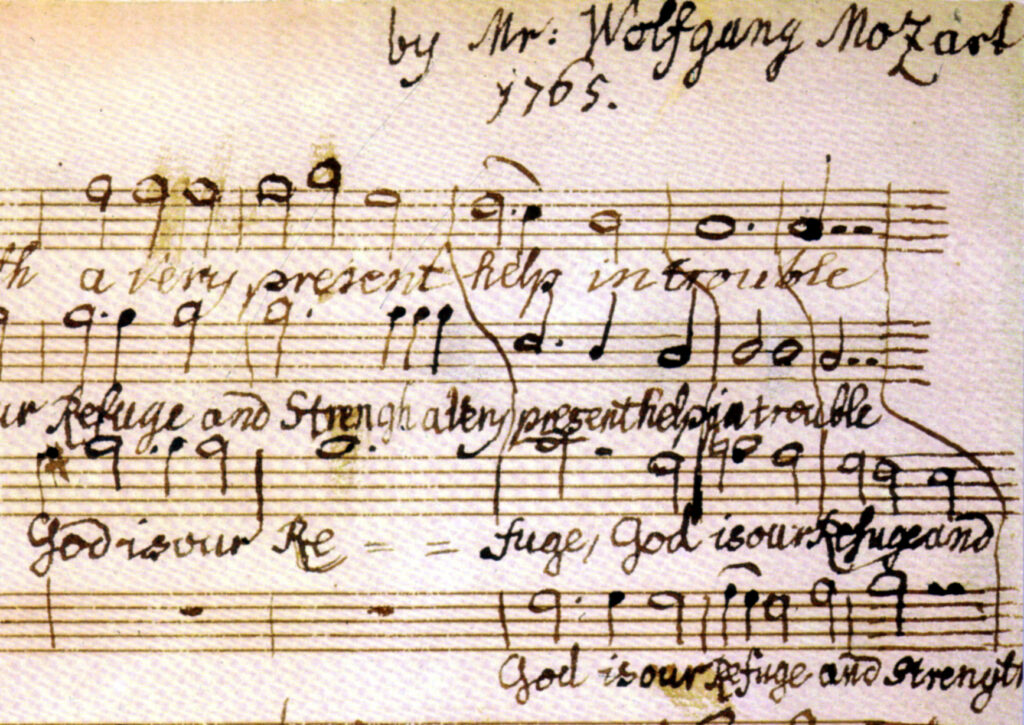 by Mr: Wolfgang Mozart
1765.
th a very present help in trouble
ur Refuge and Strengh a Very present help in trouble
God is our Re = = fuge, God is our Refuge and
God is our Refuge and Strength